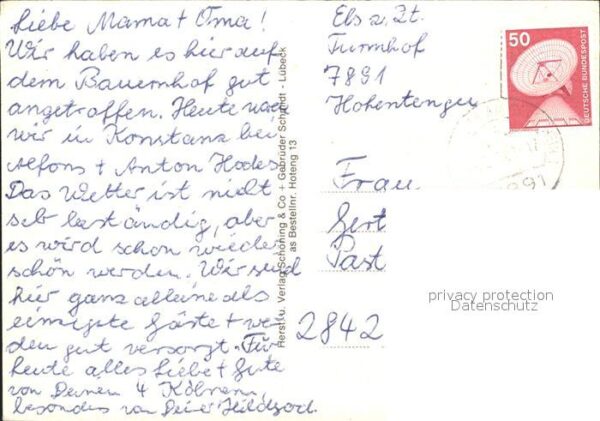 Liebe Mama + Oma!
Wir haben es hier auf
dem Bauernhof gut
angetroffen. Heute waren
wir in Konstanz bei
Alfons + Anton Hodes
Das Wetter ist nicht
sehr beständig, aber
es wird schon wieder
schön werden. Wir sind
hier ganz alleine als
einzigste Gäste + wer
den gut versorgt. Für
heute alles Liebe + Gute
von Deinen 4 Kölnern
besonders von Deiner Hildegard.
Herst. u. Verlag Schöning & Co + Gebrüder Schmidt - Lübeck
as Bestellnr. Hoteng 13
Ebs z. Zt.
Turmhof
7891
Hohentengen
50
DEUTSCHE BUNDESPOST
7891
Frau
Gert
Past
2842
privacy protection
Datenschutz